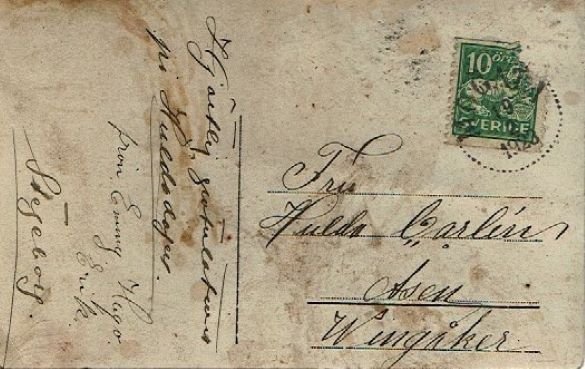 Hjärtlig gratulation
på Huldadagen.
från Emmy Hugo
Erik.
Stegeborg.
10 ÖRE
SVERIGE
19
Fru
Hulda Carlin
Åsen
Wingåker